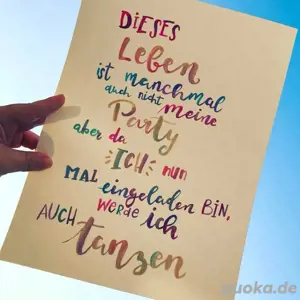 DIESES
Leben
ist manchmal
auch nicht meine
Party
aber da
ICH nun
MAL eingeladen BIN,
werde ich
AUCH tanzen
quoka.de